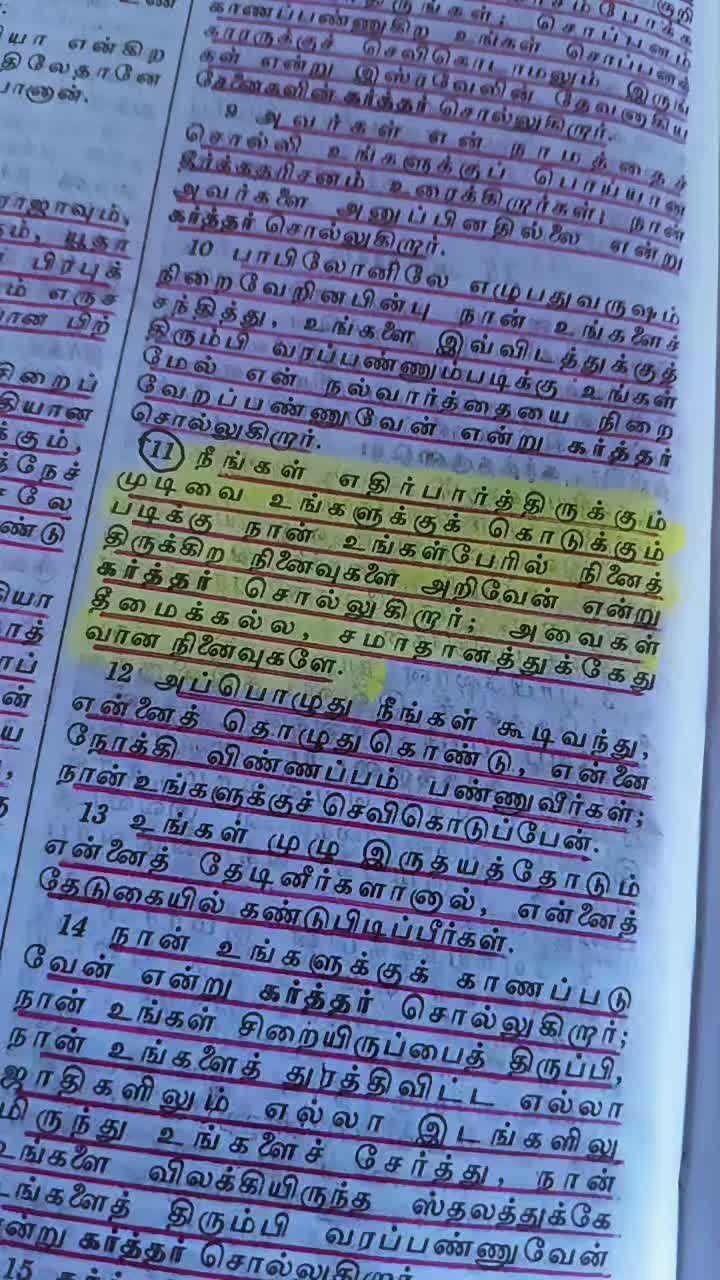 யா என்கிற
திலேதானே
போனான்.
ராஜாவும்,
கம், யூதா
பிரபுக்
ம் எருச
பான பிற்
சிறைப்
தியான
க்கும்,
த்நேச்
சலே
ண்டு
காணப்பண்ணுகிற உங்கள் சொப்பனக்
காரருக்குச் செவிகொடாமலும் இருங்
கள் என்று இஸ்ரவேலின் தேவனாகிய
சேனைகளின் கர்த்தர் சொல்லுகிறார்.
9 அவர்கள் என் நாமத்தைச்
சொல்லி உங்களுக்குப் பொய்யான
தீர்க்கதரிசனம் உரைக்கிறார்கள்; நான்
அவர்களை அனுப்பினதில்லை என்று
கர்த்தர் சொல்லுகிறார்.
10 பாபிலோனிலே எழுபதுவருஷம்
நிறைவேறினபின்பு நான் உங்களைச்
சந்தித்து, உங்களை இவ்விடத்துக்குத்
திரும்பி வரப்பண்ணும்படிக்கு உங்கள்
மேல் என் நல்வார்த்தையை நிறை
வேறப்பண்ணுவேன் என்று கர்த்தர்
சொல்லுகிறார்.
11 நீங்கள் எதிர்பார்த்திருக்கும்
முடிவை உங்களுக்குக் கொடுக்கும்
படிக்கு நான் உங்கள்பேரில் நினைத்
திருக்கிற நினைவுகளை அறிவேன் என்று
கர்த்தர் சொல்லுகிறார்; அவைகள்
தீமைக்கல்ல, சமாதானத்துக்கேது
வான நினைவுகளே.
12 அப்பொழுது நீங்கள் கூடிவந்து,
என்னைத் தொழுதுகொண்டு, என்னை
நோக்கி விண்ணப்பம் பண்ணுவீர்கள்;
நான் உங்களுக்குச் செவிகொடுப்பேன்.
13 உங்கள் முழு இருதயத்தோடும்
என்னைத் தேடினீர்களானால், என்னைத்
தேடுகையில் கண்டுபிடிப்பீர்கள்.
14 நான் உங்களுக்குக் காணப்படு
வேன் என்று கர்த்தர் சொல்லுகிறார்;
நான் உங்கள் சிறையிருப்பைத் திருப்பி,
நான் உங்களைத் துரத்திவிட்ட எல்லா
ஜாதிகளிலும் எல்லா இடங்களிலு
மிருந்து உங்களைச் சேர்த்து, நான்
உங்களை விலக்கியிருந்த ஸ்தலத்துக்கே
உங்களைத் திரும்பி வரப்பண்ணுவேன்
என்று கர்த்தர் சொல்லுகிறார்.
15